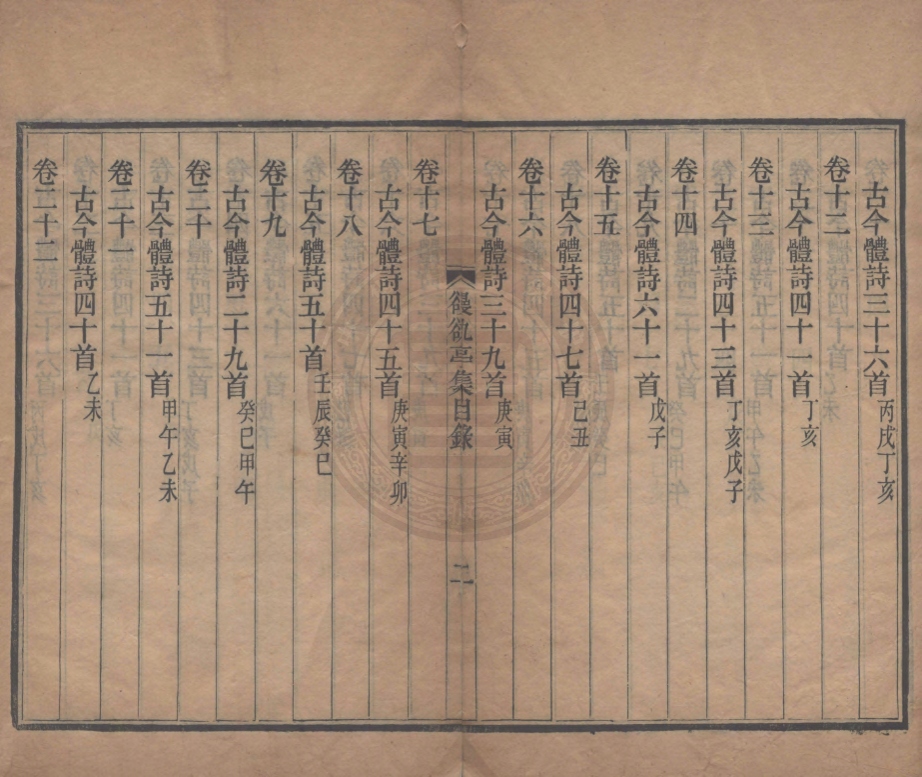 古今體詩三十六首丙戌丁亥
卷十二
古今體詩四十一首丁亥
卷十三
古今體詩四十三首丁亥戊子
卷十四
古今體詩六十一首戊子
卷十五
古今體詩四十七首己丑
卷十六
古今體詩三十九首庚寅
䜱䜪亭集目錄
二
卷十七
古今體詩四十五首庚寅辛卯
卷十八
古今體詩五十首壬辰癸巳
卷十九
古今體詩二十九首癸巳甲午
卷二十
古今體詩五十一首甲午乙未
卷二十一
古今體詩四十首乙未
卷二十二